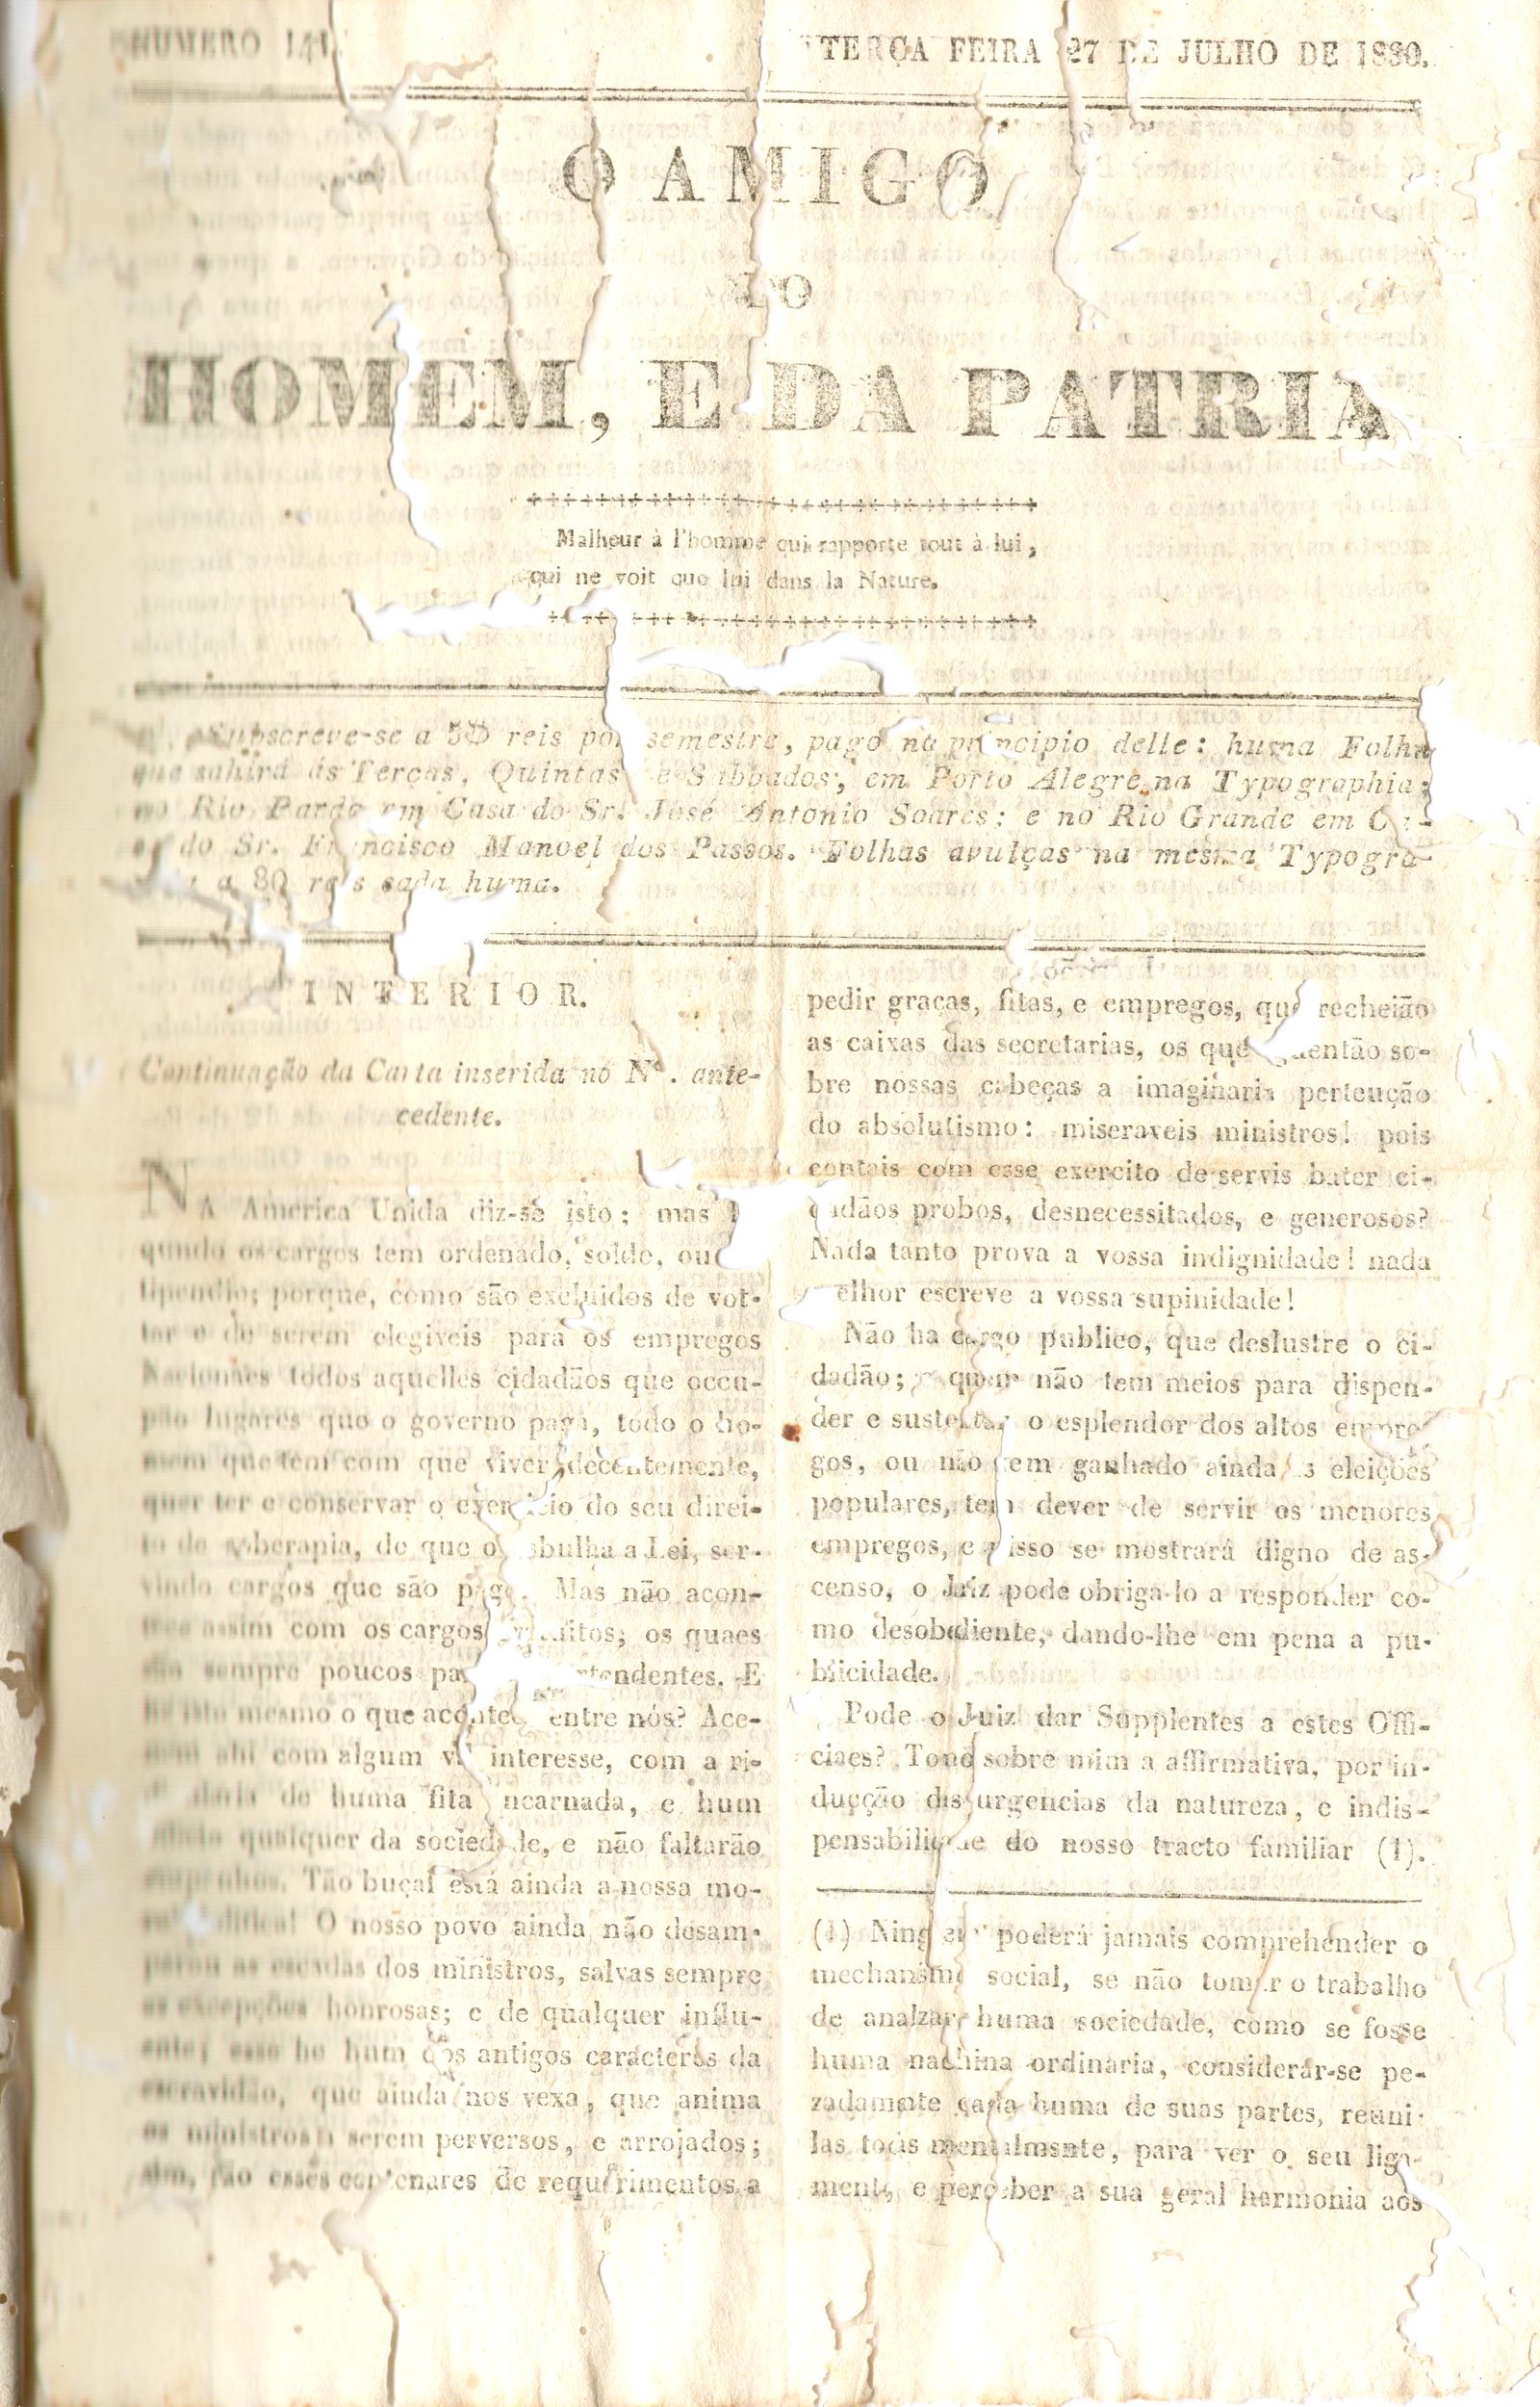 NUMERO 141
TERÇA FEIRA 27 DE JULHO DE 1830.
O AMIGO
DO
HOMEM, E DA PATRIA
Malheur à l'homme qui rapporte tout à lui,
qui ne voit que lui dans la Nature.
Subscreve-se a reis por semestre, pago no principio delle: huma Folha
que sahirá ás Terças, Quintas e Sabbados, em Porto Alegre na Typographia;
no Rio Pardo em Casa do Sr. José Antonio Soares; e no Rio Grande em Ca-
do Sr. Francisco Manoel dos Passos. Folhas avulças na mesma Typogra-
a 80 reis cada huma.
INTERIOR.
Continuação da Carta inserida no Nº. ante-
cedente.
NA America Unida diz-se isto; mas
os cargos tem ordenado, soldo, ou
porque, como são excluidos de vot-
tar e de serem elegiveis para os empregos
Nacionaes todos aquelles cidadãos que occu-
pão lugares que o governo paga, todo o ho-
mem que tem com que viver decentemente,
quer ter e conservar o exercicio do seu direi-
to de soberania, de que o esbulha a Lei, ser-
vindo cargos que são pagos. Mas não acon-
tece assim com os cargos gratuitos; os quaes
são sempre poucos pa pertendentes. E
he isto mesmo o que acontece entre nós? Ace-
nem ahi com algum vil interesse, com a ri-
de huma fita encarnada, e hum
qualquer da sociedade, e não faltarão
empenhos. Tão buçal está ainda a nossa mo-
O nosso povo ainda não desam-
parou as escadas dos ministros, salvas sempre
as excepções honrosas; e de qualquer influ-
ente; esse he hum dos antigos caracteres da
escravidão, que ainda nos vexa, que anima
os ministros a serem perversos, e arrojados;
sim, são esses centenares de requerimentos a
pedir graças, fitas, e empregos, que recheião
as caixas das secretarias, os que aguentão so-
bre nossas cabeças a imaginaria perteução
do absolutismo: miseraveis ministros! pois
contais com esse exercito de servis bater ci-
dadãos probos, desnecessitados, e generosos?
Nada tanto prova a vossa indignidade! nada
melhor escreve a vossa supinidade!
Não ha cargo publico, que deslustre o ci-
dadão; quem não tem meios para dispen-
der e sustentar o esplendor dos altos empre-
gos, ou não tem ganhado ainda as eleições
populares, tem dever de servir os menores
empregos, e n isso se mostrará digno de as-
censo, o Juiz pode obriga-lo a responder co-
mo desobediente, dando-lhe em pena a pu-
blicidade.
Pode o Juiz dar Supplentes a estes Offi-
ciaes? Tomo sobre mim a affirmativa, por in-
ducção das urgencias da natureza, e indis-
pensabilidade do nosso tracto familiar (1).
(1) Ninguem poderá jamais comprehender o
mechanismo social, se não tomar o trabalho
de analzar huma sociedade, como se fosse
huma nachina ordinaria, considerar-se pe-
zadamnte cada huma de suas partes, reuni-
las todas mentalmsnte, para ver o seu liga-
mento, e perceber a sua geral harmonia aos